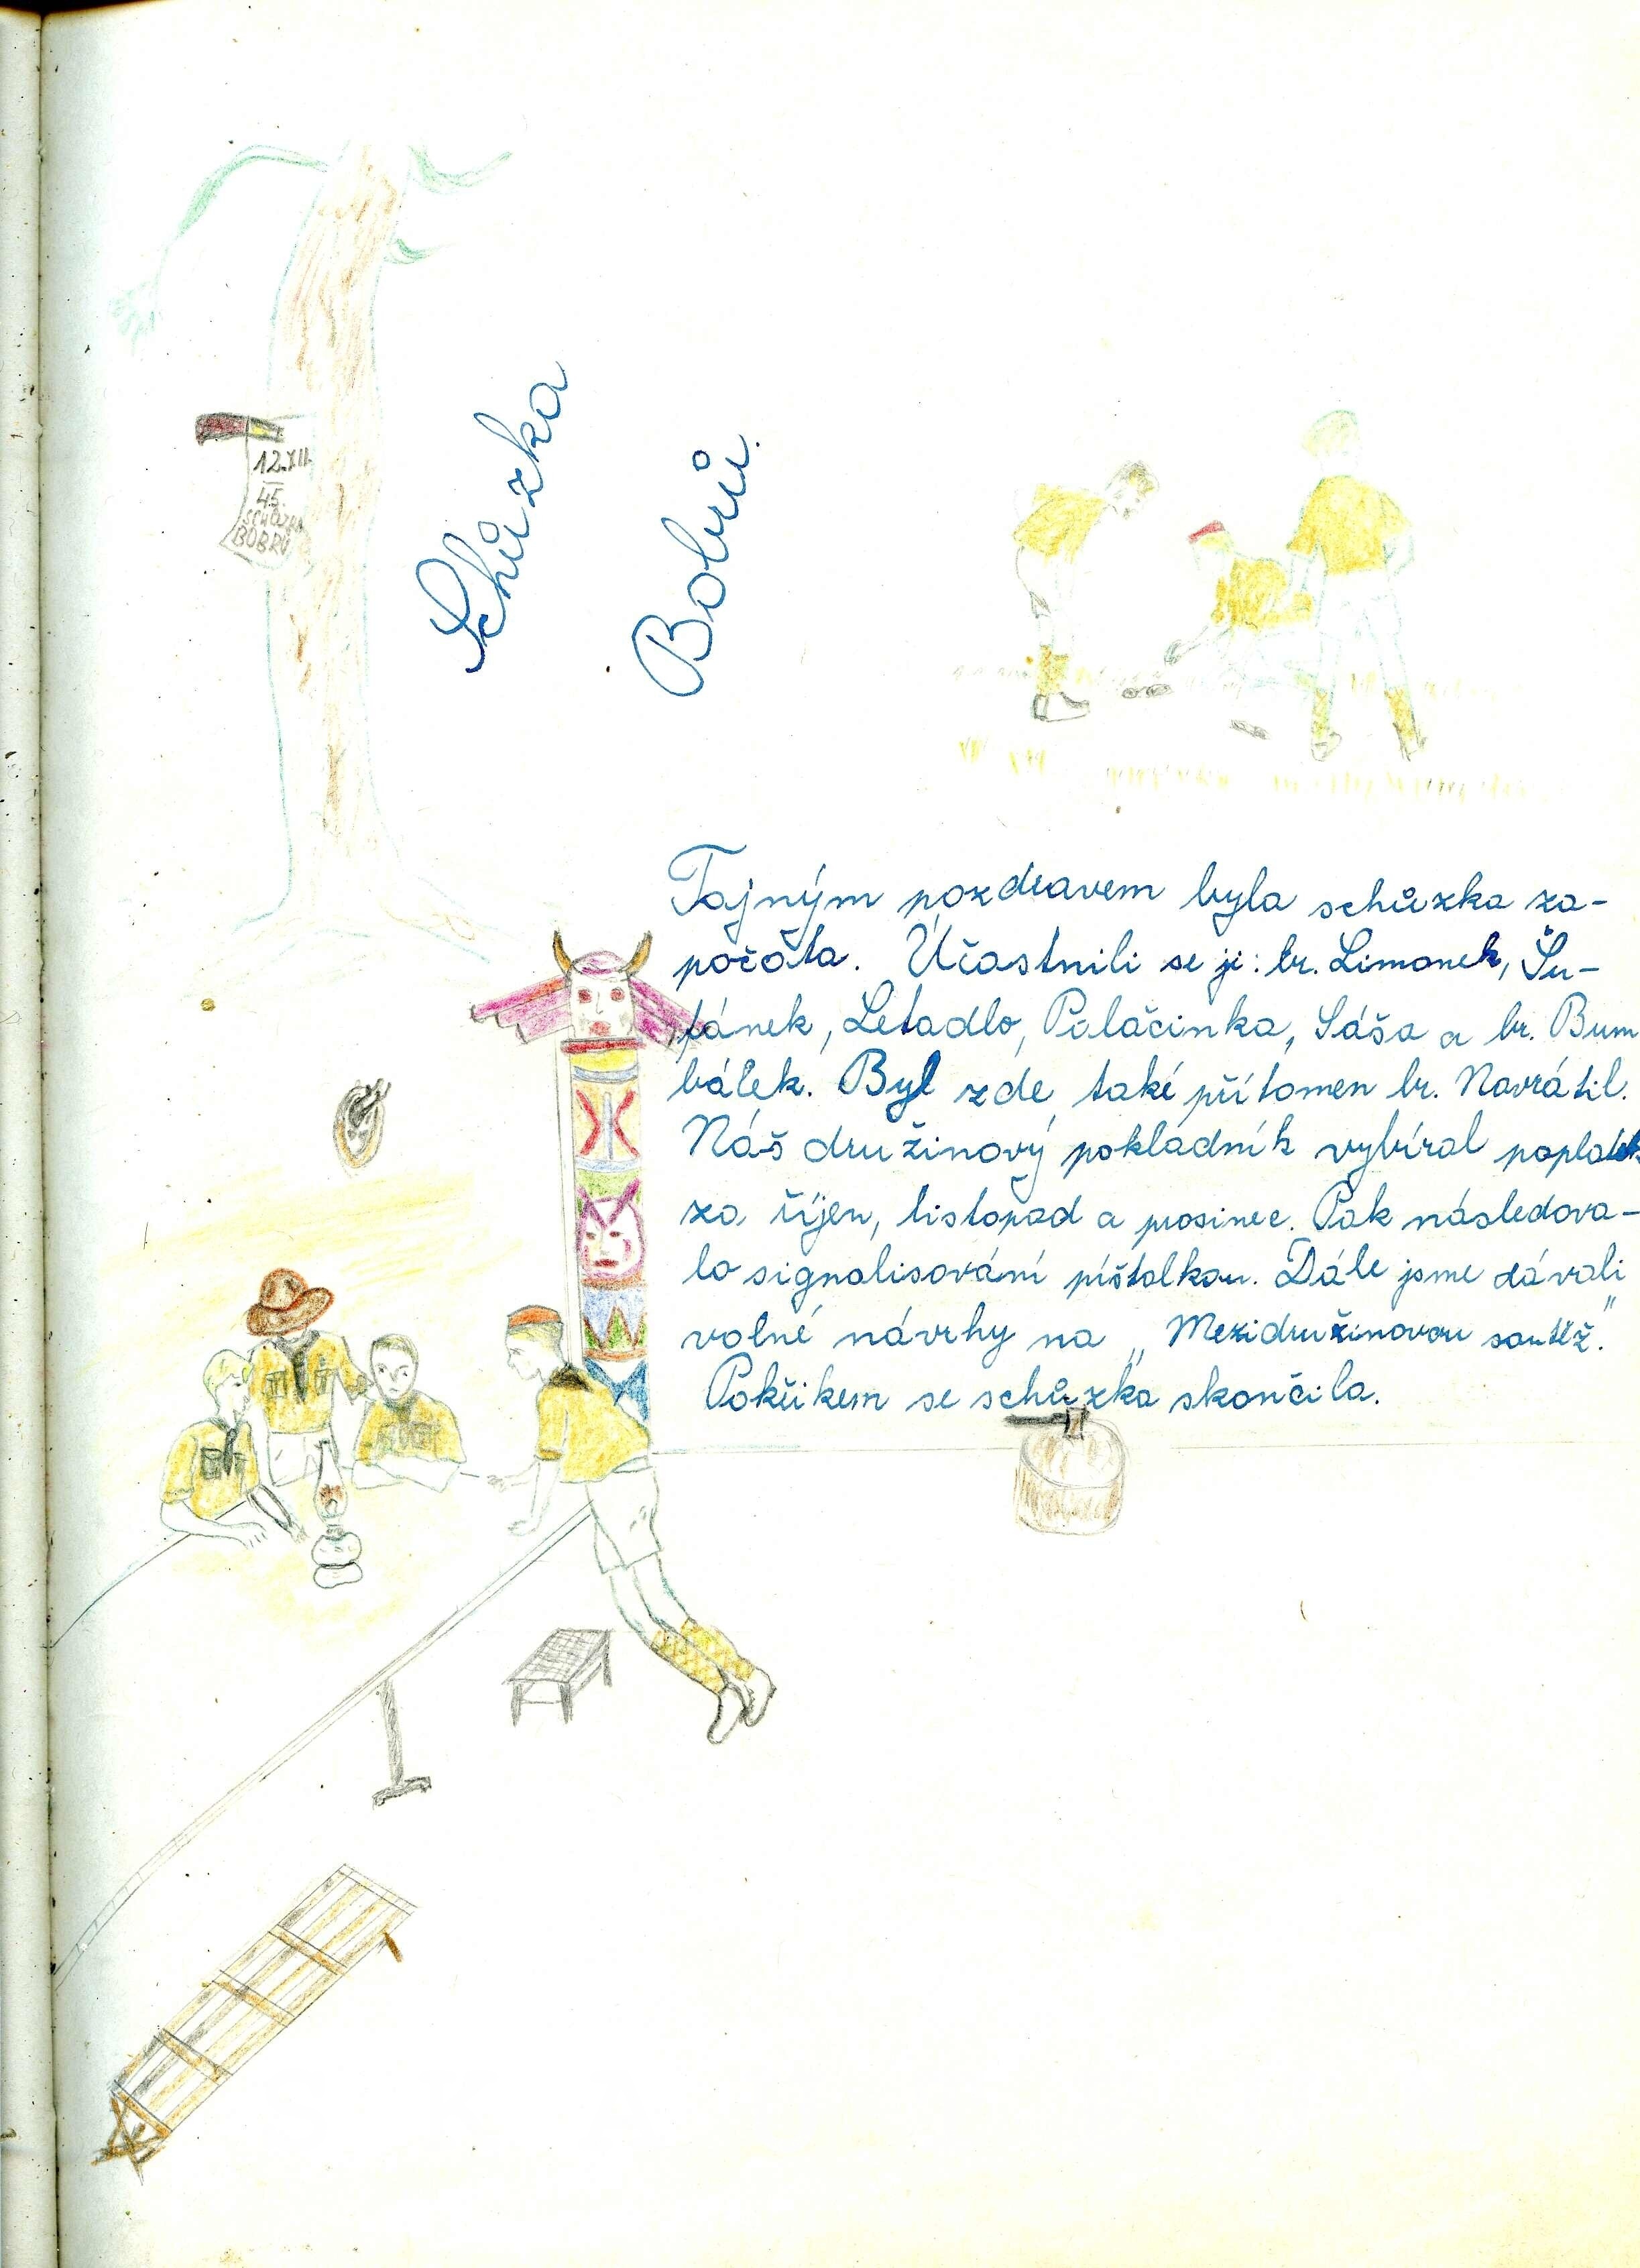 12.XII.
45.
SCHŮZKA
BOBRŮ
Schůzka
Bobrů.
Tajným pozdravem byla schůzka za-
počata. Účastnili se jí: br. Limonek, Šu-
tánek, Letadlo, Palačinka, Sáša a br. Bum
bálek. Byl zde také přítomen br. Navrátil.
Náš družinový pokladník vybíral poplatek
za říjen, listopad a prosinec. Pak následova-
lo signalisování píšťalkou. Dále jsme dávali
volné návrhy na „Mezidružinovou soutěž."
Pokřikem se schůzka skončila.